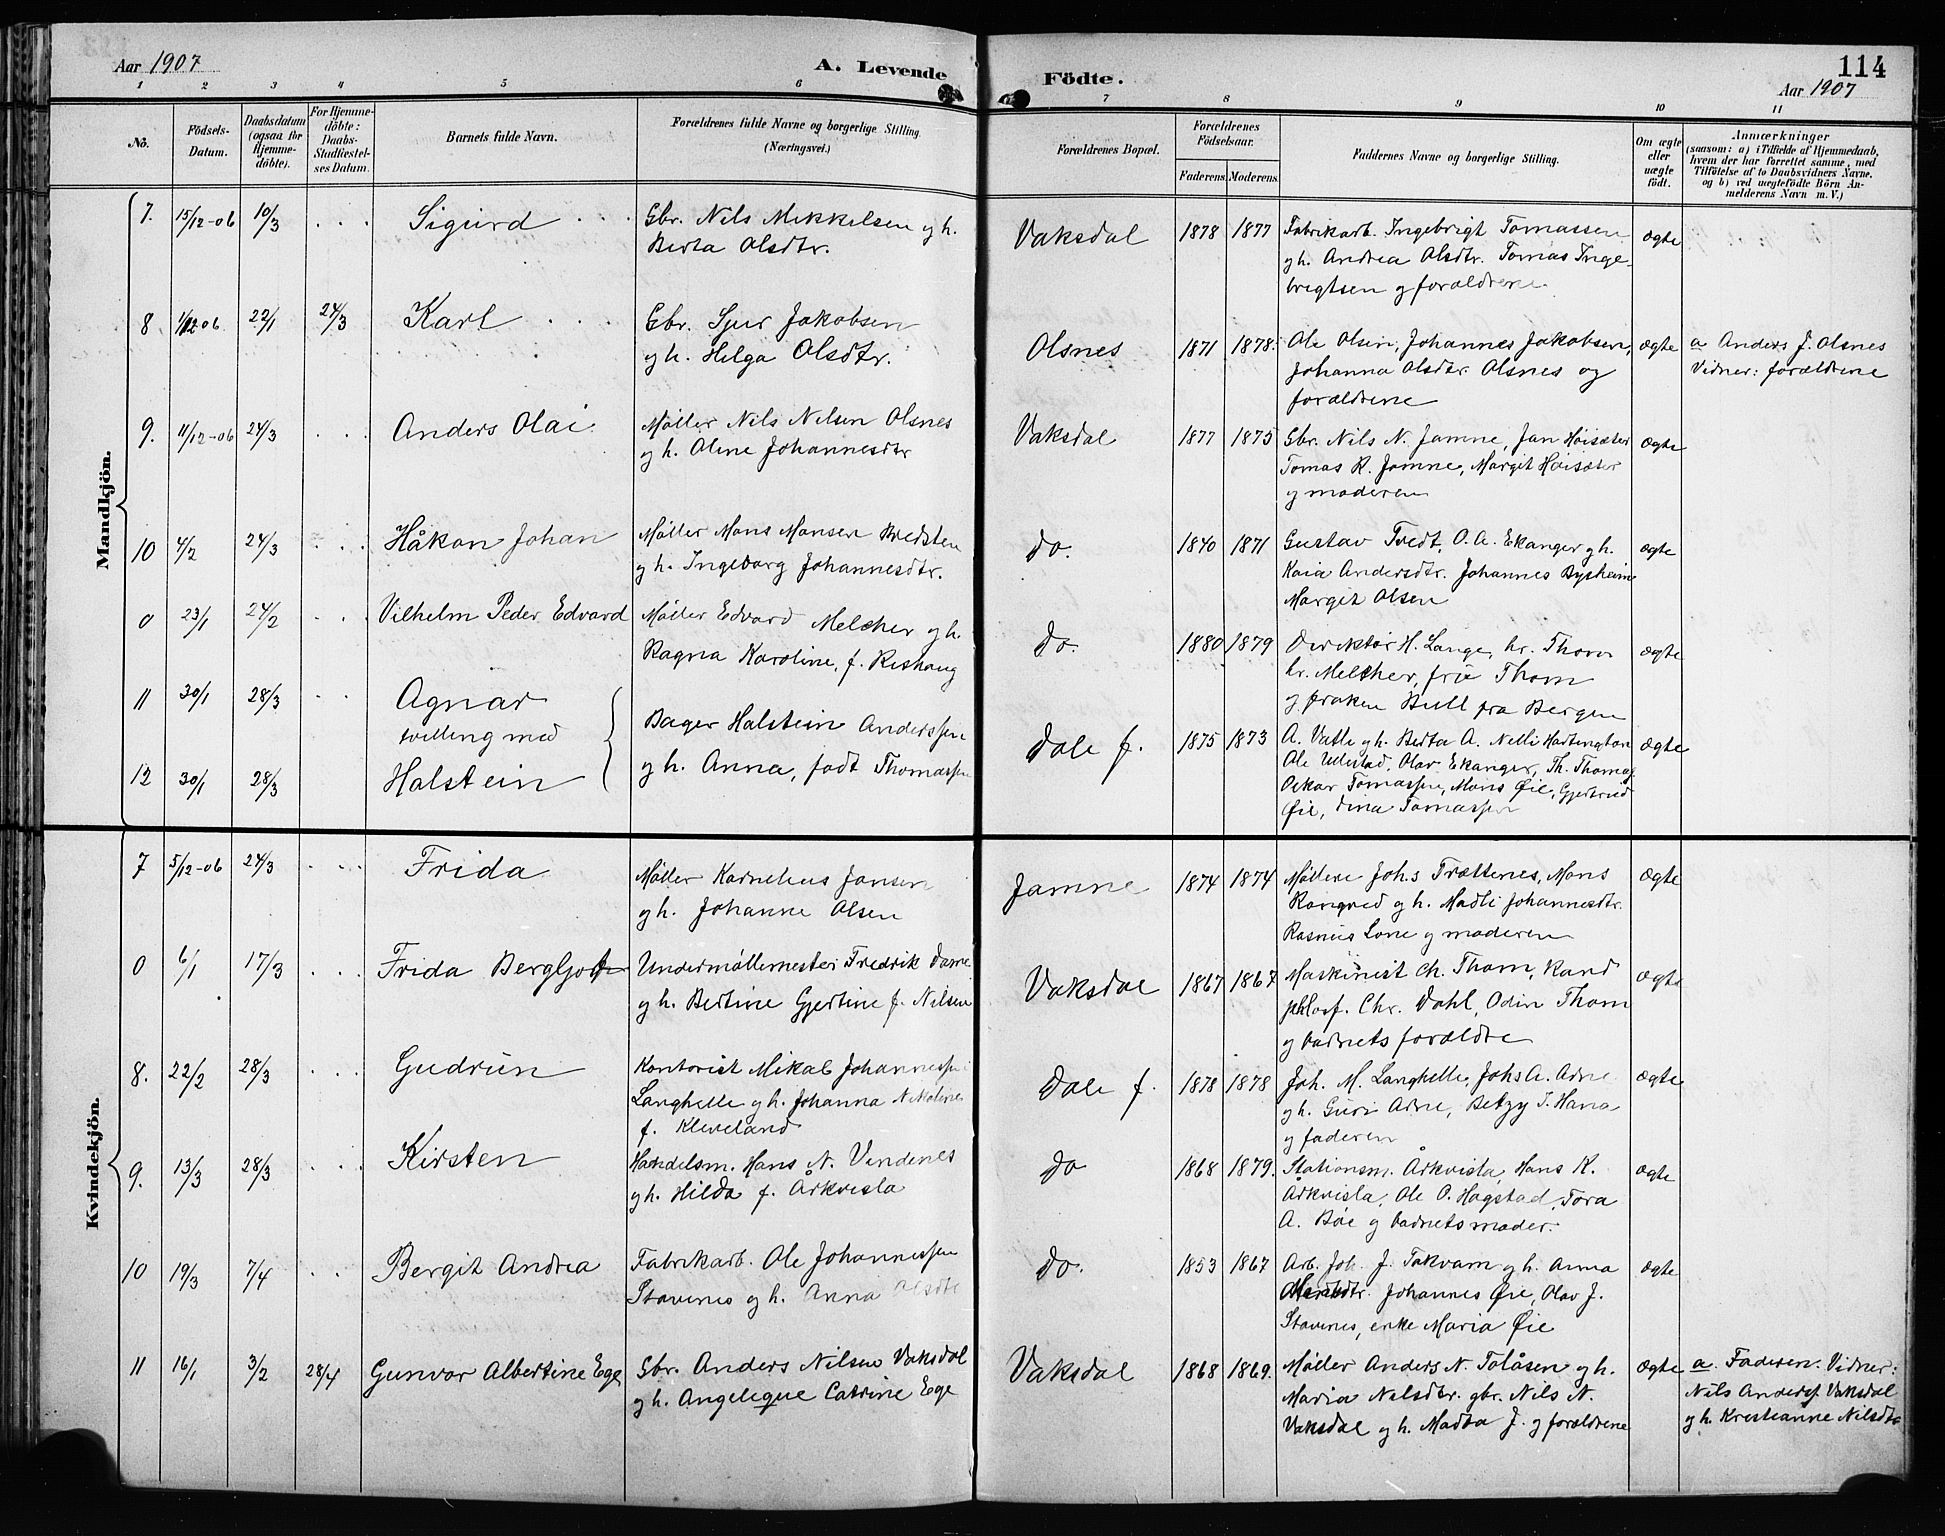 Aar 1907
A. Levende
Födte.
114
Aar 1907
1 2 3 4 5 6 7 8 9 10 11
No.
Födsels-
Datum.
Daabsdatum
(ogsaa för
Hjemme-
döbte).
For Hjemme-
döbte:
Daabs-
Stadfæstel-
ses Datum.
Barnets fulde Navn.
Forældrenes fulde Navne og borgerlige Stilling.
(Næringsvei.)
Forældrenes Bopæl.
Forældrenes
Födselsaar.
Faderens. Moderens.
Faddernes Navne og borgerlige Stilling.
Om ægte
eller
uægte
födt.
Anmærkninger
(saasom: a) i Tilfælde af Hjemmedaab,
hvem der har forrettet samme, med
Tilföielse af to Daabsvidners Navne.
og b) ved uægtefödte Börn An-
melderens Navn m. V.)
Mandkjön.
7. 15/12-06 10/3 Sigurd Gbr. Nils Mikkelsen og h.
Berta Olsdtr.
Vaksdal 1878 1877 Fabrikarb. Ingebrigt Tomassen
og h. Andrea Olsdtr. Tomas Inge-
brigtsen og forældrene
ægte
8 1/12 06 22/1 24/3 Karl Gbr. Sjur Jakobsen
og h. Helga Olsdtr.
Olsnes 1871 1878. Ole Olsen, Johannes Jakobsen,
Johanna Olsdtr. Olsnes og
forældrene
ægte a Anders J. Olsnes
Vidner: forældrene
9. 11/12-06 24/3 Anders Olai Møller Nils Nilsen Olsnes
og h. Oline Johannesdtr
Vaksdal 1877 1875 Gbr. Nils N. Jamne, Jan Høisæter
Tomas R. Jamne, Margit Høisæter
og moderen
ægte
10 4/2 24/3 Håkon Johan Møller Mons Monsen Bredsten
og h. Ingeborg Johannesdtr.
do. 1840 1871 Gustav Tvedt, O. A. Ekanger og h.
Kaia Andersdtr. Johannes Bysheim
Margit Olsen
ægte
0 23/1 24/2 Vilhelm Peder Edvard Møller Edvard Melcher og h.
Ragna Karoline, f. Rishaug
do. 1880 1879 Direktør H. Lange, hr. Thom
hr. Melcher, frü Thom
og frøken Bull fra Bergen
ægte
11 30/1 28/3 Agnar
tvilling med
12 30/1 28/3 Halstein
Bager Halstein Anderssen
og h. Anna, født Thomassen
Dale f. 1875 1873 A. Vatle og h. Berta A. Nelli Hartington
Ole Ullestad, Olav Ekanger, Th. Thomas
Oskar Tomassen, Mons Øie, Gjertrud
Øie, Dina Tomassen
ægte
Kvindekjön.
7 5/12-06 24/3 Frida Møller Kornelius Jansen
og h. Johanne Olsen
Jamne 1874 1874 Møllere Johs Trættenes, Mons
og h. Madli Johannesdtr.
Rasmus Lone og moderen
ægte
0 6/1 17/3 Frida Bergljot Undermøllemester Fredrik Dame
og h. Bertine Gjertine f. Nilsen
Vaksdal 1867 1867 Maskinist Ch. Thom, Kand
philos. Chr. Dahl, Odin Thom
og barnets forældre
ægte
8. 22/2 28/3 Gudrün Kontorist Mikal Johannessen
Langhelle og h. Johanna Nikoline
f. Kleveland
Dale f. 1878 1878 Joh. M. Langhelle, Johs A. Arne
og h. Guri Arne, Betzy J. Hana
og faderen
ægte
9. 13/3 28/3 Kirsten Handelsm. Hans N. Vindenes
og h. Hilda f. Arkvisla
do 1868 1879. Stationsm. Årkvisla, Hans K.
Årkvisla, Ole O. Hagstad, Tora
A. Bøe og barnets moder.
ægte
10 19/3 7/4 Bergit Andrea Fabrikarb. Ole Johannessen
Stavenes og h. Anna Olsdtr
do. 1853 1867 Arb. Joh. J. Takvam og h. Anna
Johannes Øie, Olav J.
Stavenes, enke Maria Øie
ægte
11 16/1 3/2 28/4 Gunvor Albertine Ege Gbr. Anders Nilsen Vaksdal
og h. Angeleque Catrine Ege
Vaksdal 1868 1869. Møller Anders N. Tolåsen og h.
Maria Nilsdtr. gbr. Nils N.
Vaksdal og h. Marta J. og forældrene
ægte a. Faderen. Vidner:
Nils Anderss Vaksdal
og h. Kristianne Nilsdtr